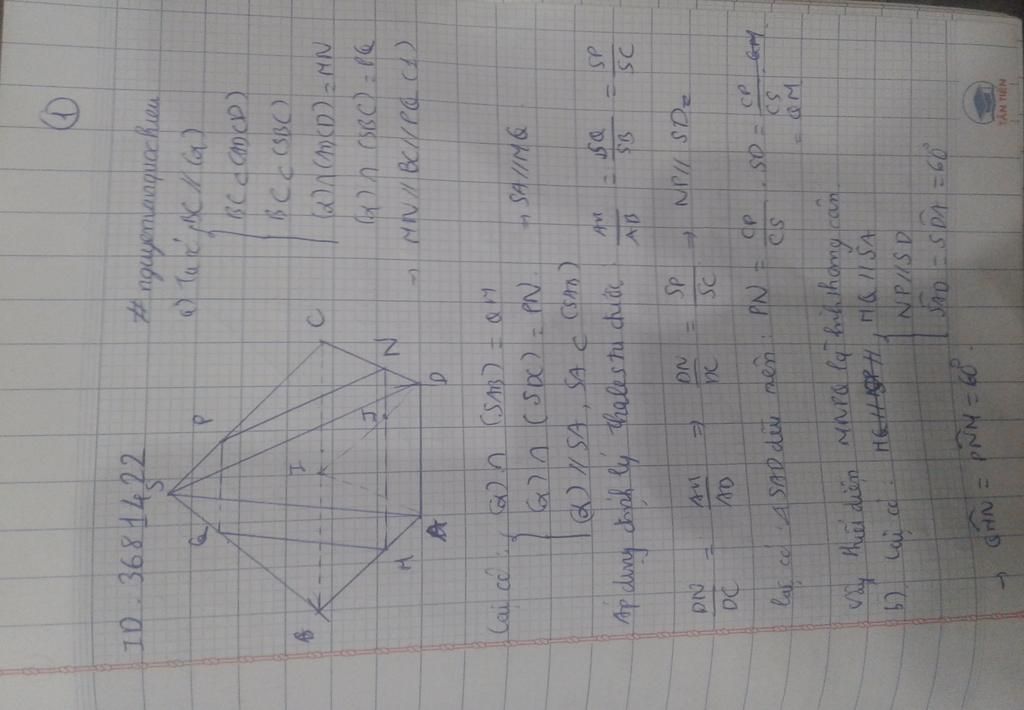 ①
ID: 3681422
# nguyetmaparoschieu
S
Q
P
B
I
C
J
M
N
A
D
a) Ta có: BC // (α)
BC ⊂ (ABCD)
BC ⊂ (SBC)
(α) ∩ (ABCD) = MN
(α) ∩ (SBC) = PQ
→ MN // BC // PQ (1)
Lại có: (α) ∩ (SAB) = QM
(α) ∩ (SDC) = PN
(α) // SA, SA ⊂ (SAB)
→ SA // MQ
Áp dụng định lý Thales ta chứa: AM/AB = SQ/SB = SP/SC
DN/DC = AM/AD ⇒ DN/DC = SP/SC → NP // SD
lại có: ΔSAD đều nên: PN = CP/CS . SD = CP/CS . QM
= QM
Vậy thiết diện MNPQ là hình thang cân
b) Lại có: MQ // SA
NP // SD
SAD = SDA = 60°
→ QMN = PNM = 60°.
TÂN TIẾN